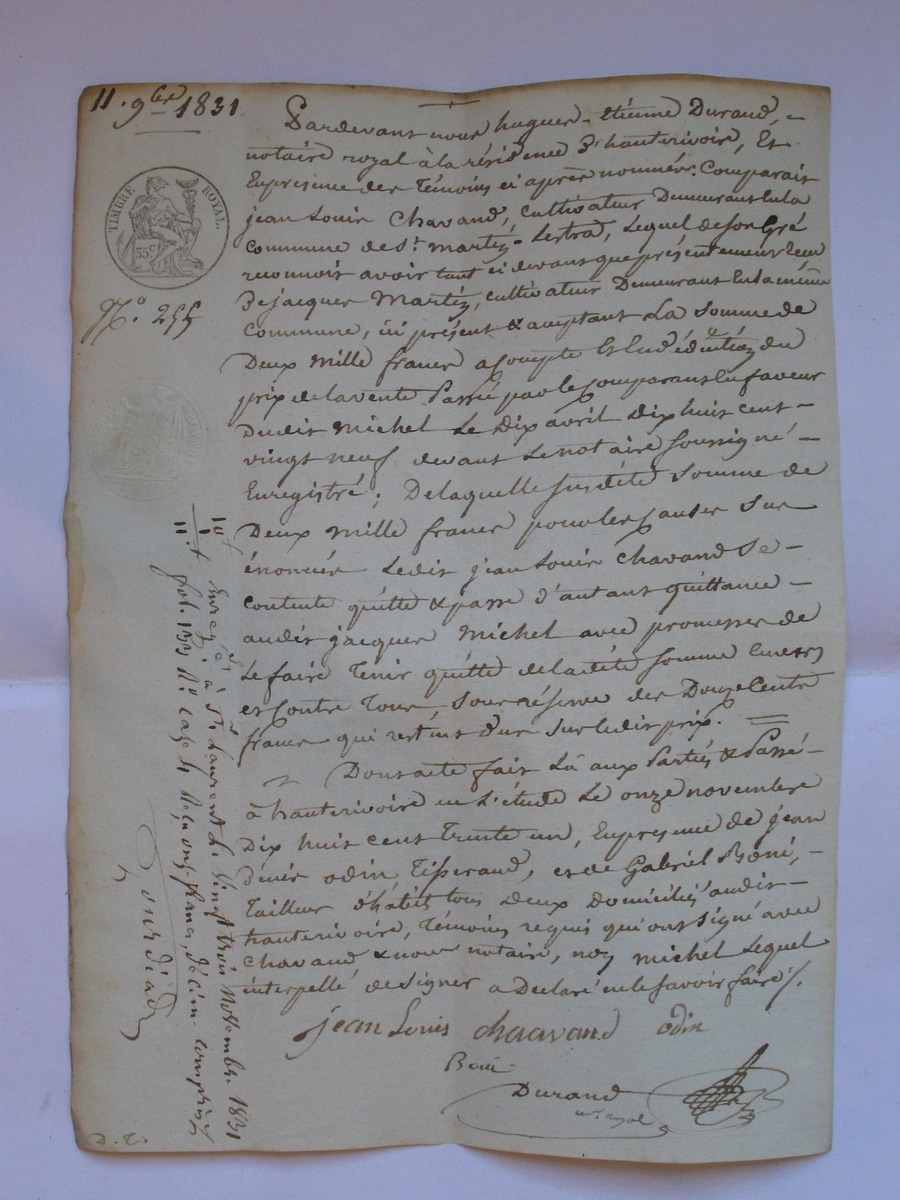 11. 9bre 1831
TIMBRE ROYAL.
35c
No. 255
Pardevant nous hugues-Etienne Durand,
notaire royal à la résidence d'hauterivoire, Et
En présence des Témoins ci après nommés; Comparait
jean Louis Chavand, cultivateur Demeurant En la
commune de St. martin-Lestra, Lequel de son Gré
reconnoit avoir tant ci devant que présentement reçu
De jacques Martin, cultivateur Demeurant En la même
Commune, ici présent & acceptant La Somme de
Deux Mille francs a Compte Et En déduction du
prix de la vente Passée par le Comparant En faveur
Dudit Michel Le Dix avril Dix huit cent
vingt neuf devant Le notaire soussigné
Enregistré; De laquelle susdite Somme de
Deux Mille francs pour les causes Sus
énoncées Ledit jean Louis Chavand Se
contente quitte & passe d'autant quittance
audit jacques Michel avec promesses de
Le faire Tenir quitte de ladite Somme Envers
et Contre Tous, Sous réserve des Douze Cents
francs qui restent dus Sur Ledit prix.
Dont acte fait Lû aux Parties & Passé
à hauterivoire en L'étude Le onze novembre
Dix huit cent Trente un, En présence de jean
Denis odin Tisserand, et de Gabriel Beni,
Tailleur d'habits tous Deux Domiciliés audit
hauterivoire, Témoins requis qui ont Signé avec
Chavand & nous notaire, non Michel Lequel
interpellé de signer a Déclaré ne le Savoir faire ./.
jean Louis chaavand odin
Beni
Durand
nre. royal
Enregé. à St. Laurent le vingt trois Novembre 1831
fol. 133 Ro. case 4 Reçu onze francs, décime compris
D. E.